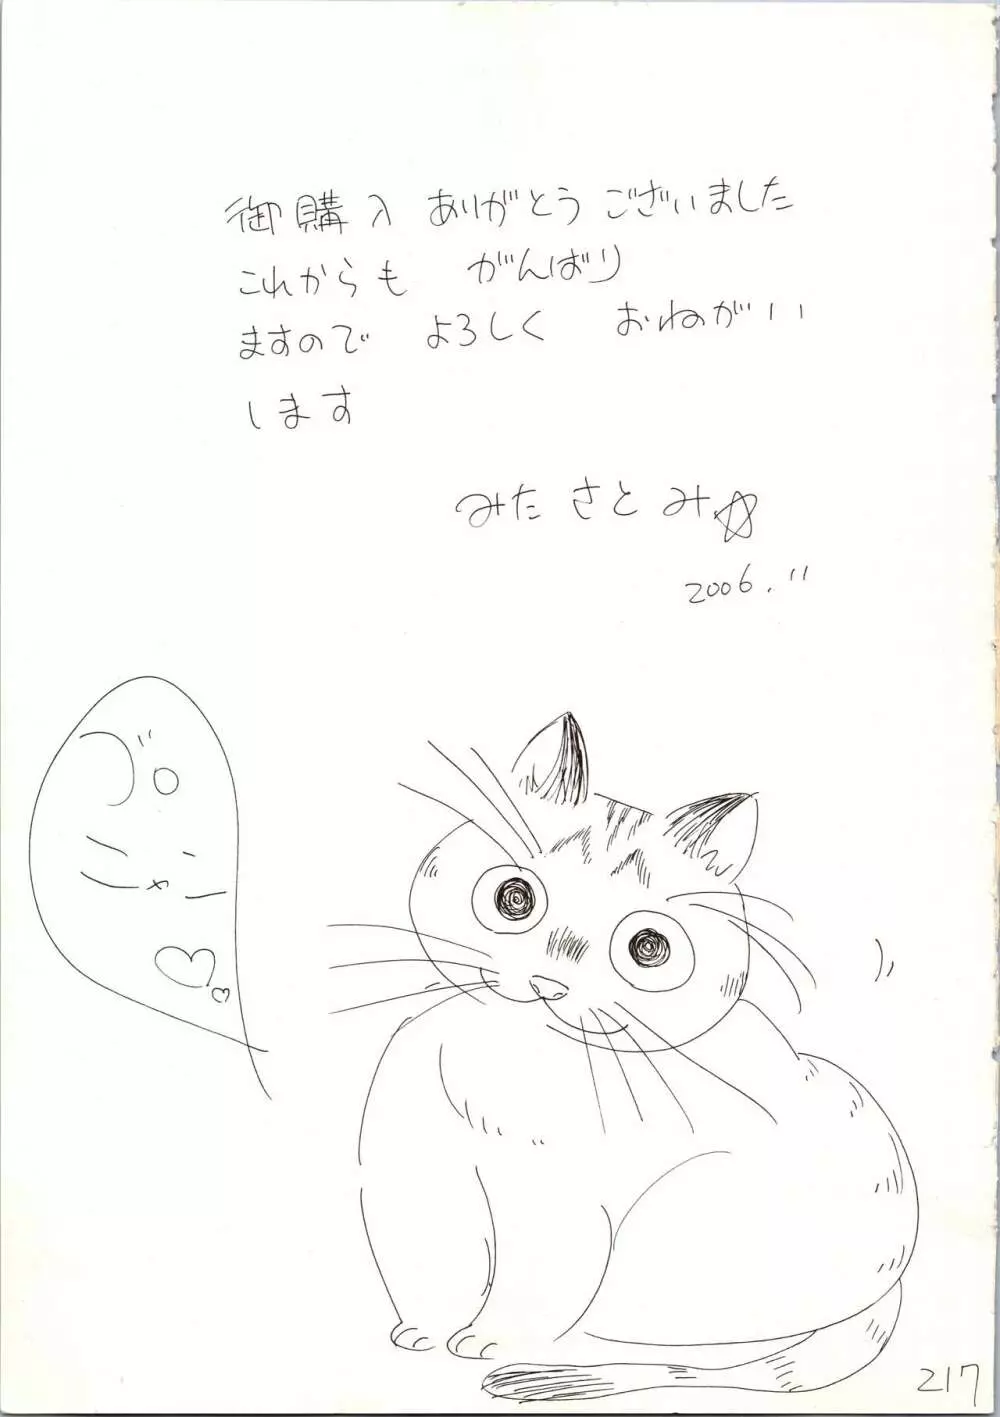 御購入 ありがとう ございました
これからも がんばり
ますので よろしく おねがい
します
みた さと み☆
2006.11
217